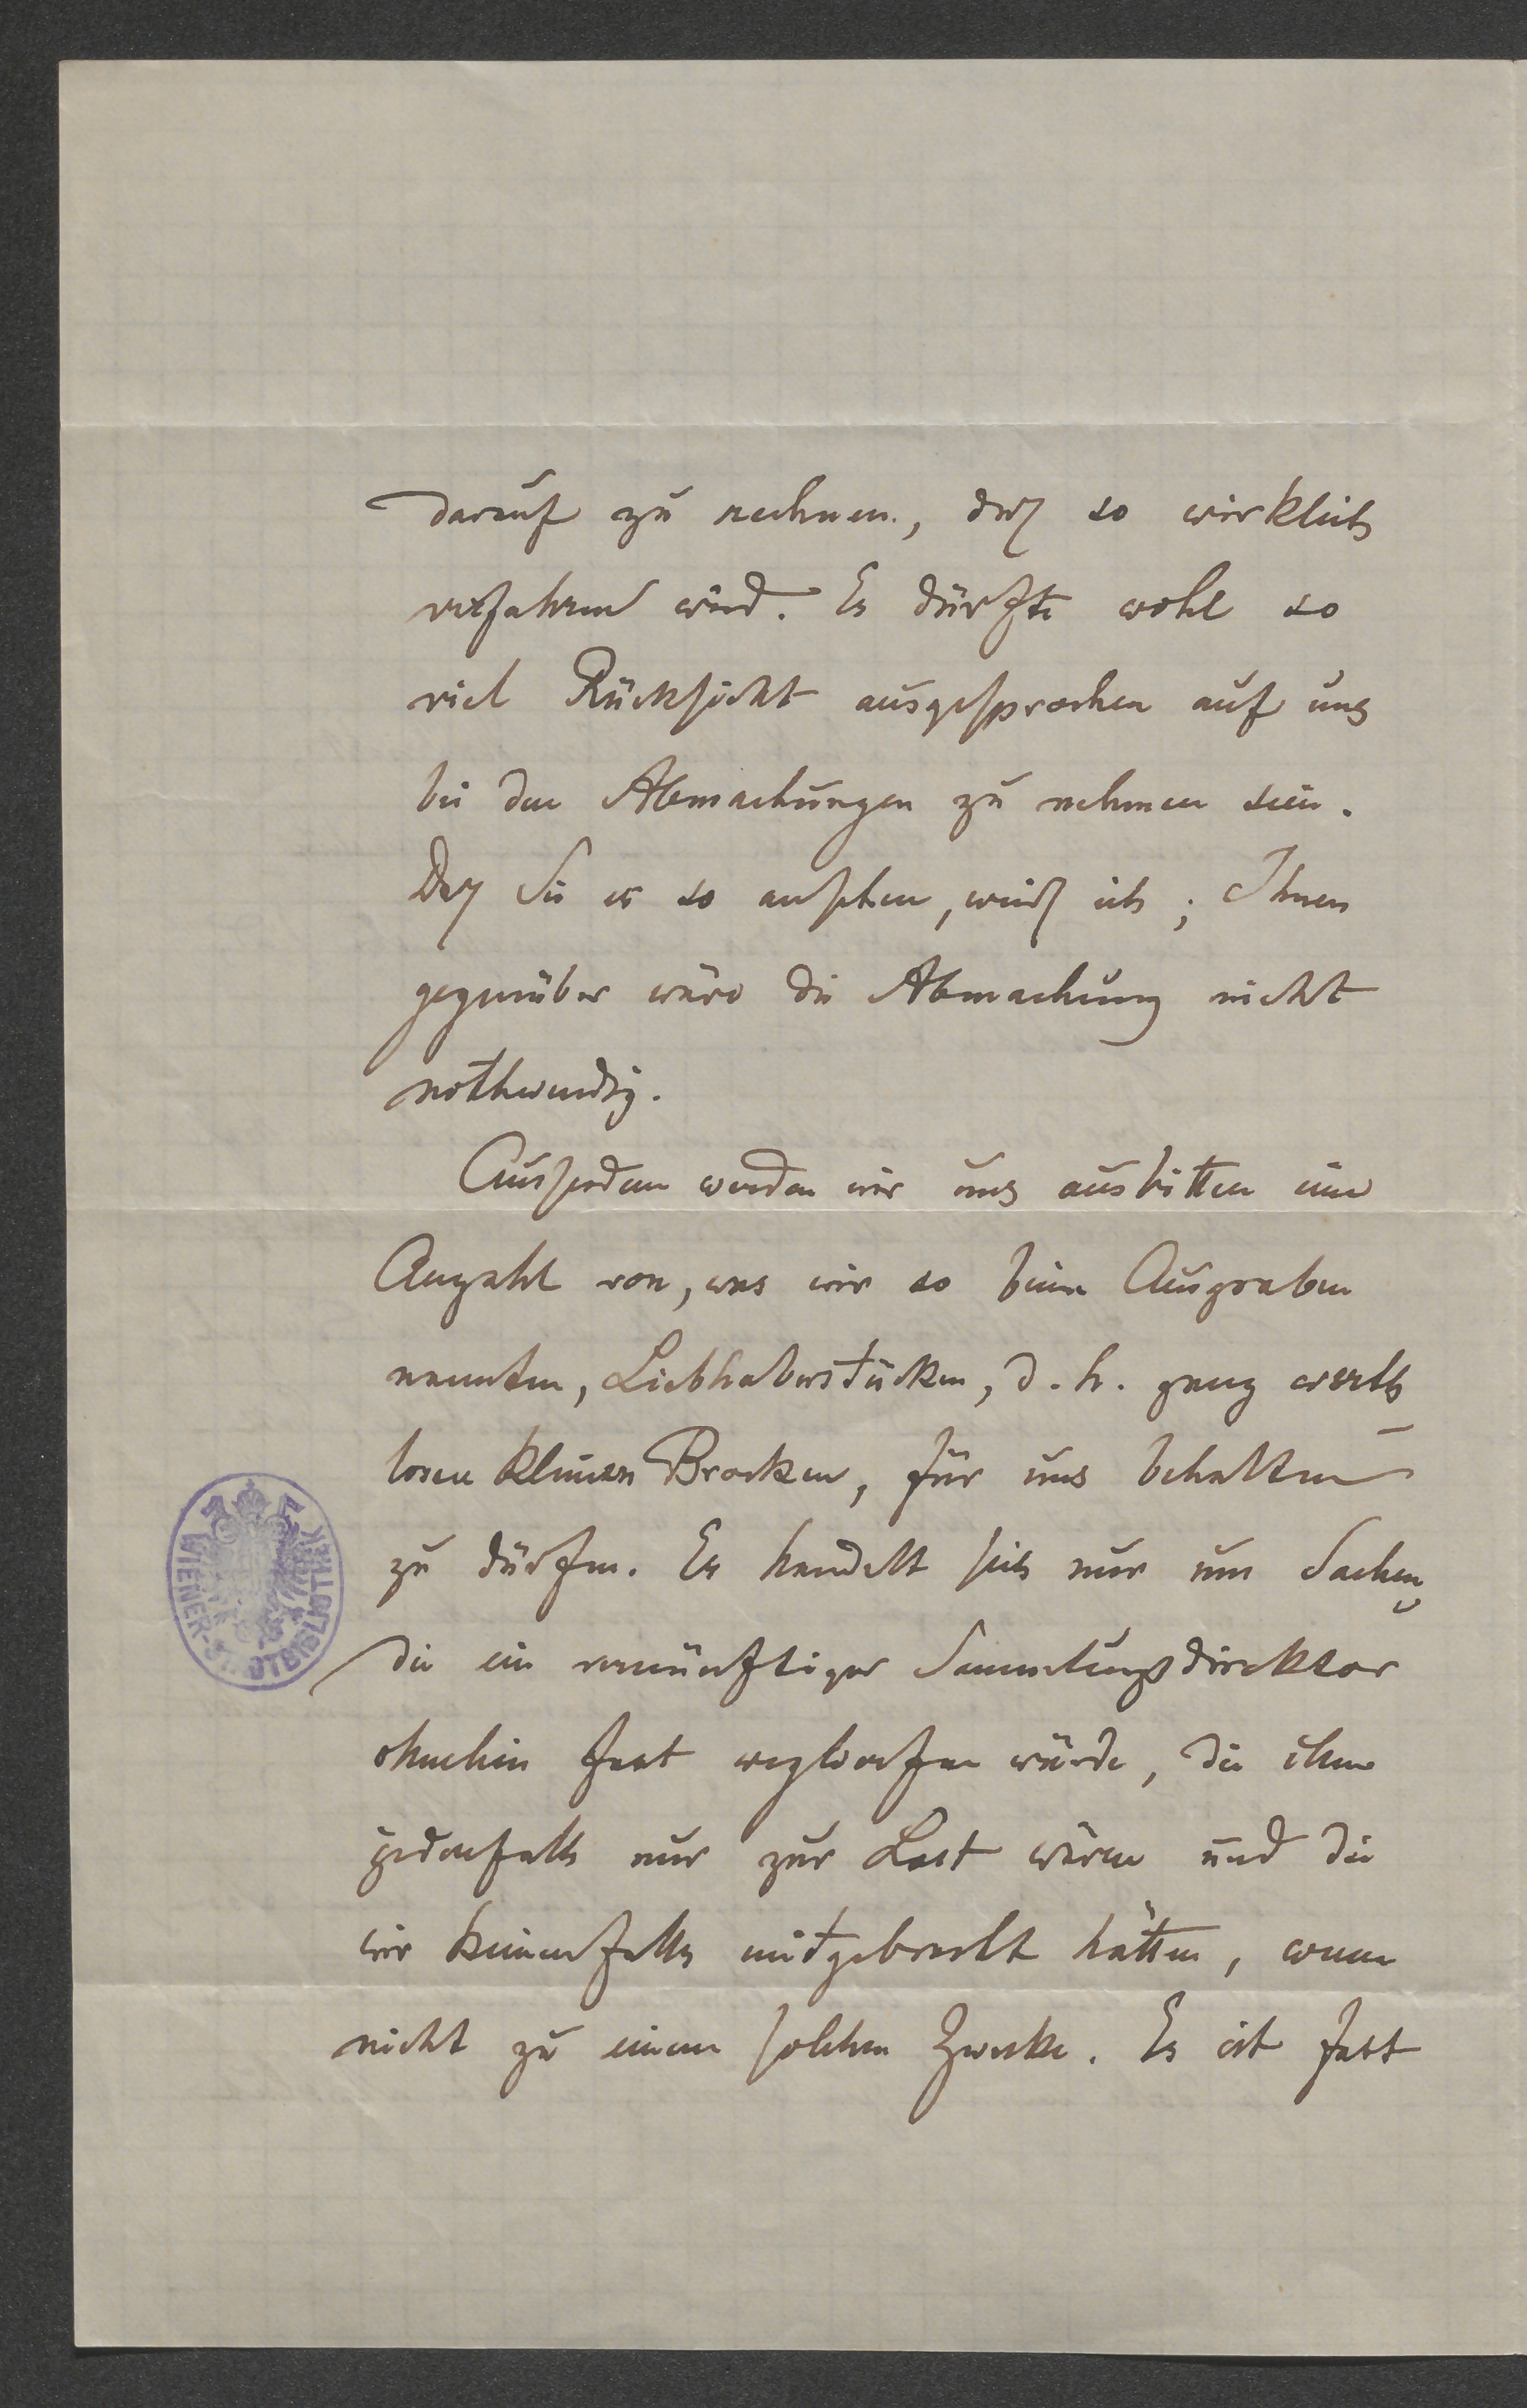 darauf zu rechnen, daß so wirklich
verfahren wird. Es dürfte wohl so
viel Rücksicht ausgesprochen auf uns
bei den Abmachungen zu nehmen sein.
Daß Sie es so ansehen, weiß ich; Ihnen
gegenüber wäre die Abmachung nicht
nothwendig.
Ausserdem werden wir uns ausbitten eine
Anzahl von, was wir so beim Ausgraben
nannten, Liebhaberstücken, d. h. ganz werth
losen kleinen Brocken, für uns behalten
zu dürfen. Es handelt sich nur um Sachen,
die ein vernünftiger Sammlungsdirektor
ohnehin fast wegwerfen würde, die ihm
jedenfalls nur zur Last wären und die
wir keinenfalls mitgebracht hätten, wenn
nicht zu einem solchen Zwecke. Es ist fast
WIENER-STADTBIBLIOTHEK